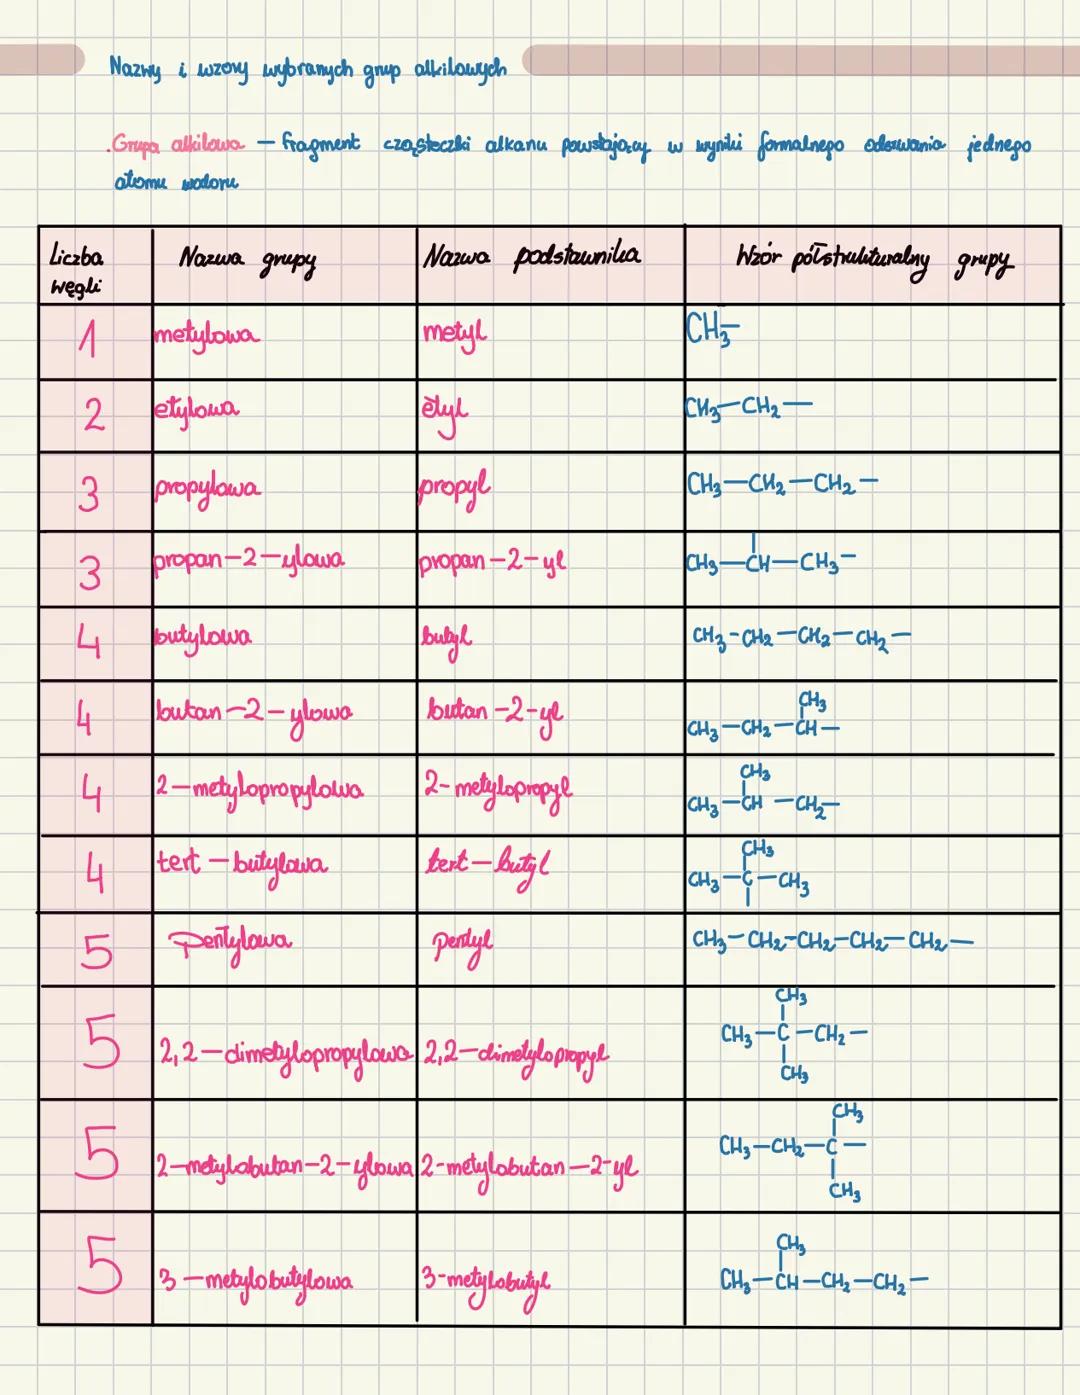 Nazwy i wzory wybranych grup alkilowych
.Grupa alkilowa — fragment cząsteczki alkanu powstający w wyniku formalnego oderwania jednego
atomu wodoru
Liczba węgli Nazwa grupy Nazwa podstawnika Wzór półstrukturalny grupy
1 metylowa metyl CH3—
2 etylowa etyl CH3—CH2—
3 propylowa propyl CH3—CH2—CH2—
3 propan-2-ylowa propan-2-yl CH3—CH—CH3—
4 butylowa butyl CH3-CH2—CH2—CH2—
CH3
4 butan-2-ylowa butan-2-yl CH3—CH2—CH—
CH3
4 2-metylopropylowa 2-metylopropyl CH3—CH—CH2—
CH3
4 tert-butylowa tert-butyl CH3—C—CH3
5 pentylowa pentyl CH3—CH2—CH2—CH2—CH2—
CH3
CH3—C—CH2—
5 2,2-dimetylopropylowa 2,2-dimetylopropyl
CH3
CH3
CH3—CH2—C—
5 2-metylobutan-2-ylowa 2-metylobutan-2-yl
CH3
CH3
5 3-metylobutylowa 3-metylobutyl CH3—CH—CH2—CH2—